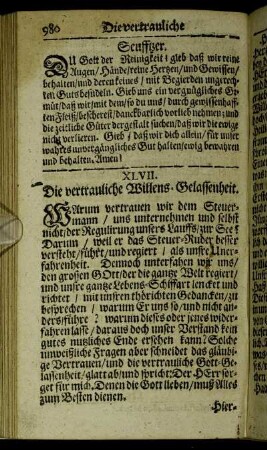 980 Die vertrauliche
Seuffzer.
DU Gott der Reinigkeit! gieb daß wir reine
Augen/ Hände/ reine Hertzen/ und Gewissen
behalten/ und deren keines/ mit Begierden ungerech-
ten Guts besudeln. Gieb uns ein vergnügliches Ge-
müt/ daß wir/ mit dem/ so du uns/ durch gewissenhaff-
ten Fleiß/ bescherest/ danckbarlich vorlieb nehmen: und
die zeitliche Güter dergestalt suchen/ daß wir die ewige
nicht verlieren. Gieb/ daß wir dich allein/ für unser
wahres unvergängliches Gut halten/ ewig bewahren
und behalten. Amen!
XLVII.
Die vertrauliche Willens-Gelassenheit.
WArum vertrauen wir dem Steuer-
mann/ uns unternehmen und selbst
nicht/ der Regulirung unsers Lauffs/ zur See?
Darum/ weil er das Steuer-Ruder besser
versteht/ führt/ und regiert/ als unsre Uner-
fahrenheit. Dennoch unterfahen wir uns/
den grossen GOtt/ der die gantze Welt regiert/
und unsre gantze Lebens-Schiffart lencket und
richtet/ mit unsren thörichten Gedancken/ zu
besprechen/ warum Er uns so/ und nicht an-
ders/ führe? warum dieses oder jenes wider-
fahren lasse/ daraus doch unser Verstand kein
gutes nutzliches Ende ersehen kann? Solche
unweißliche Fragen aber schneidet das gläubi-
ge Vertrauen/ und die vertrauliche Gott-Ge-
lassenheit/ glatt ab/ und spricht: Der HErr sor-
get für mich. Denen die Gott lieben/ muß Alles
zum Besten dienen.
Hier-